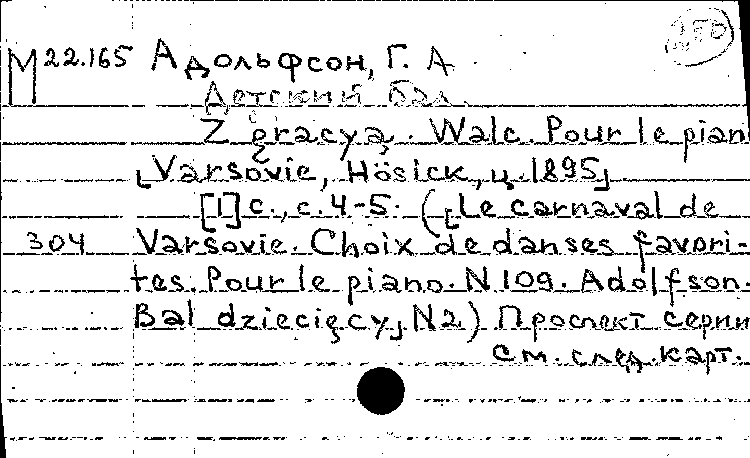 М 22.165 Адольфсон, Г. А.
Детский бал.
Z gracyą. Walc. Pour le pian
[Varsovie, Hösick, ц. 1895]
[1] с., с. 4-5. ([Le carnaval de
304 Varsovie. Choix de danses favori-
tes. Pour le piano. N 109. Adolfson.
Bal dziecięcy], N2) Проспект серии
см. след. карт.